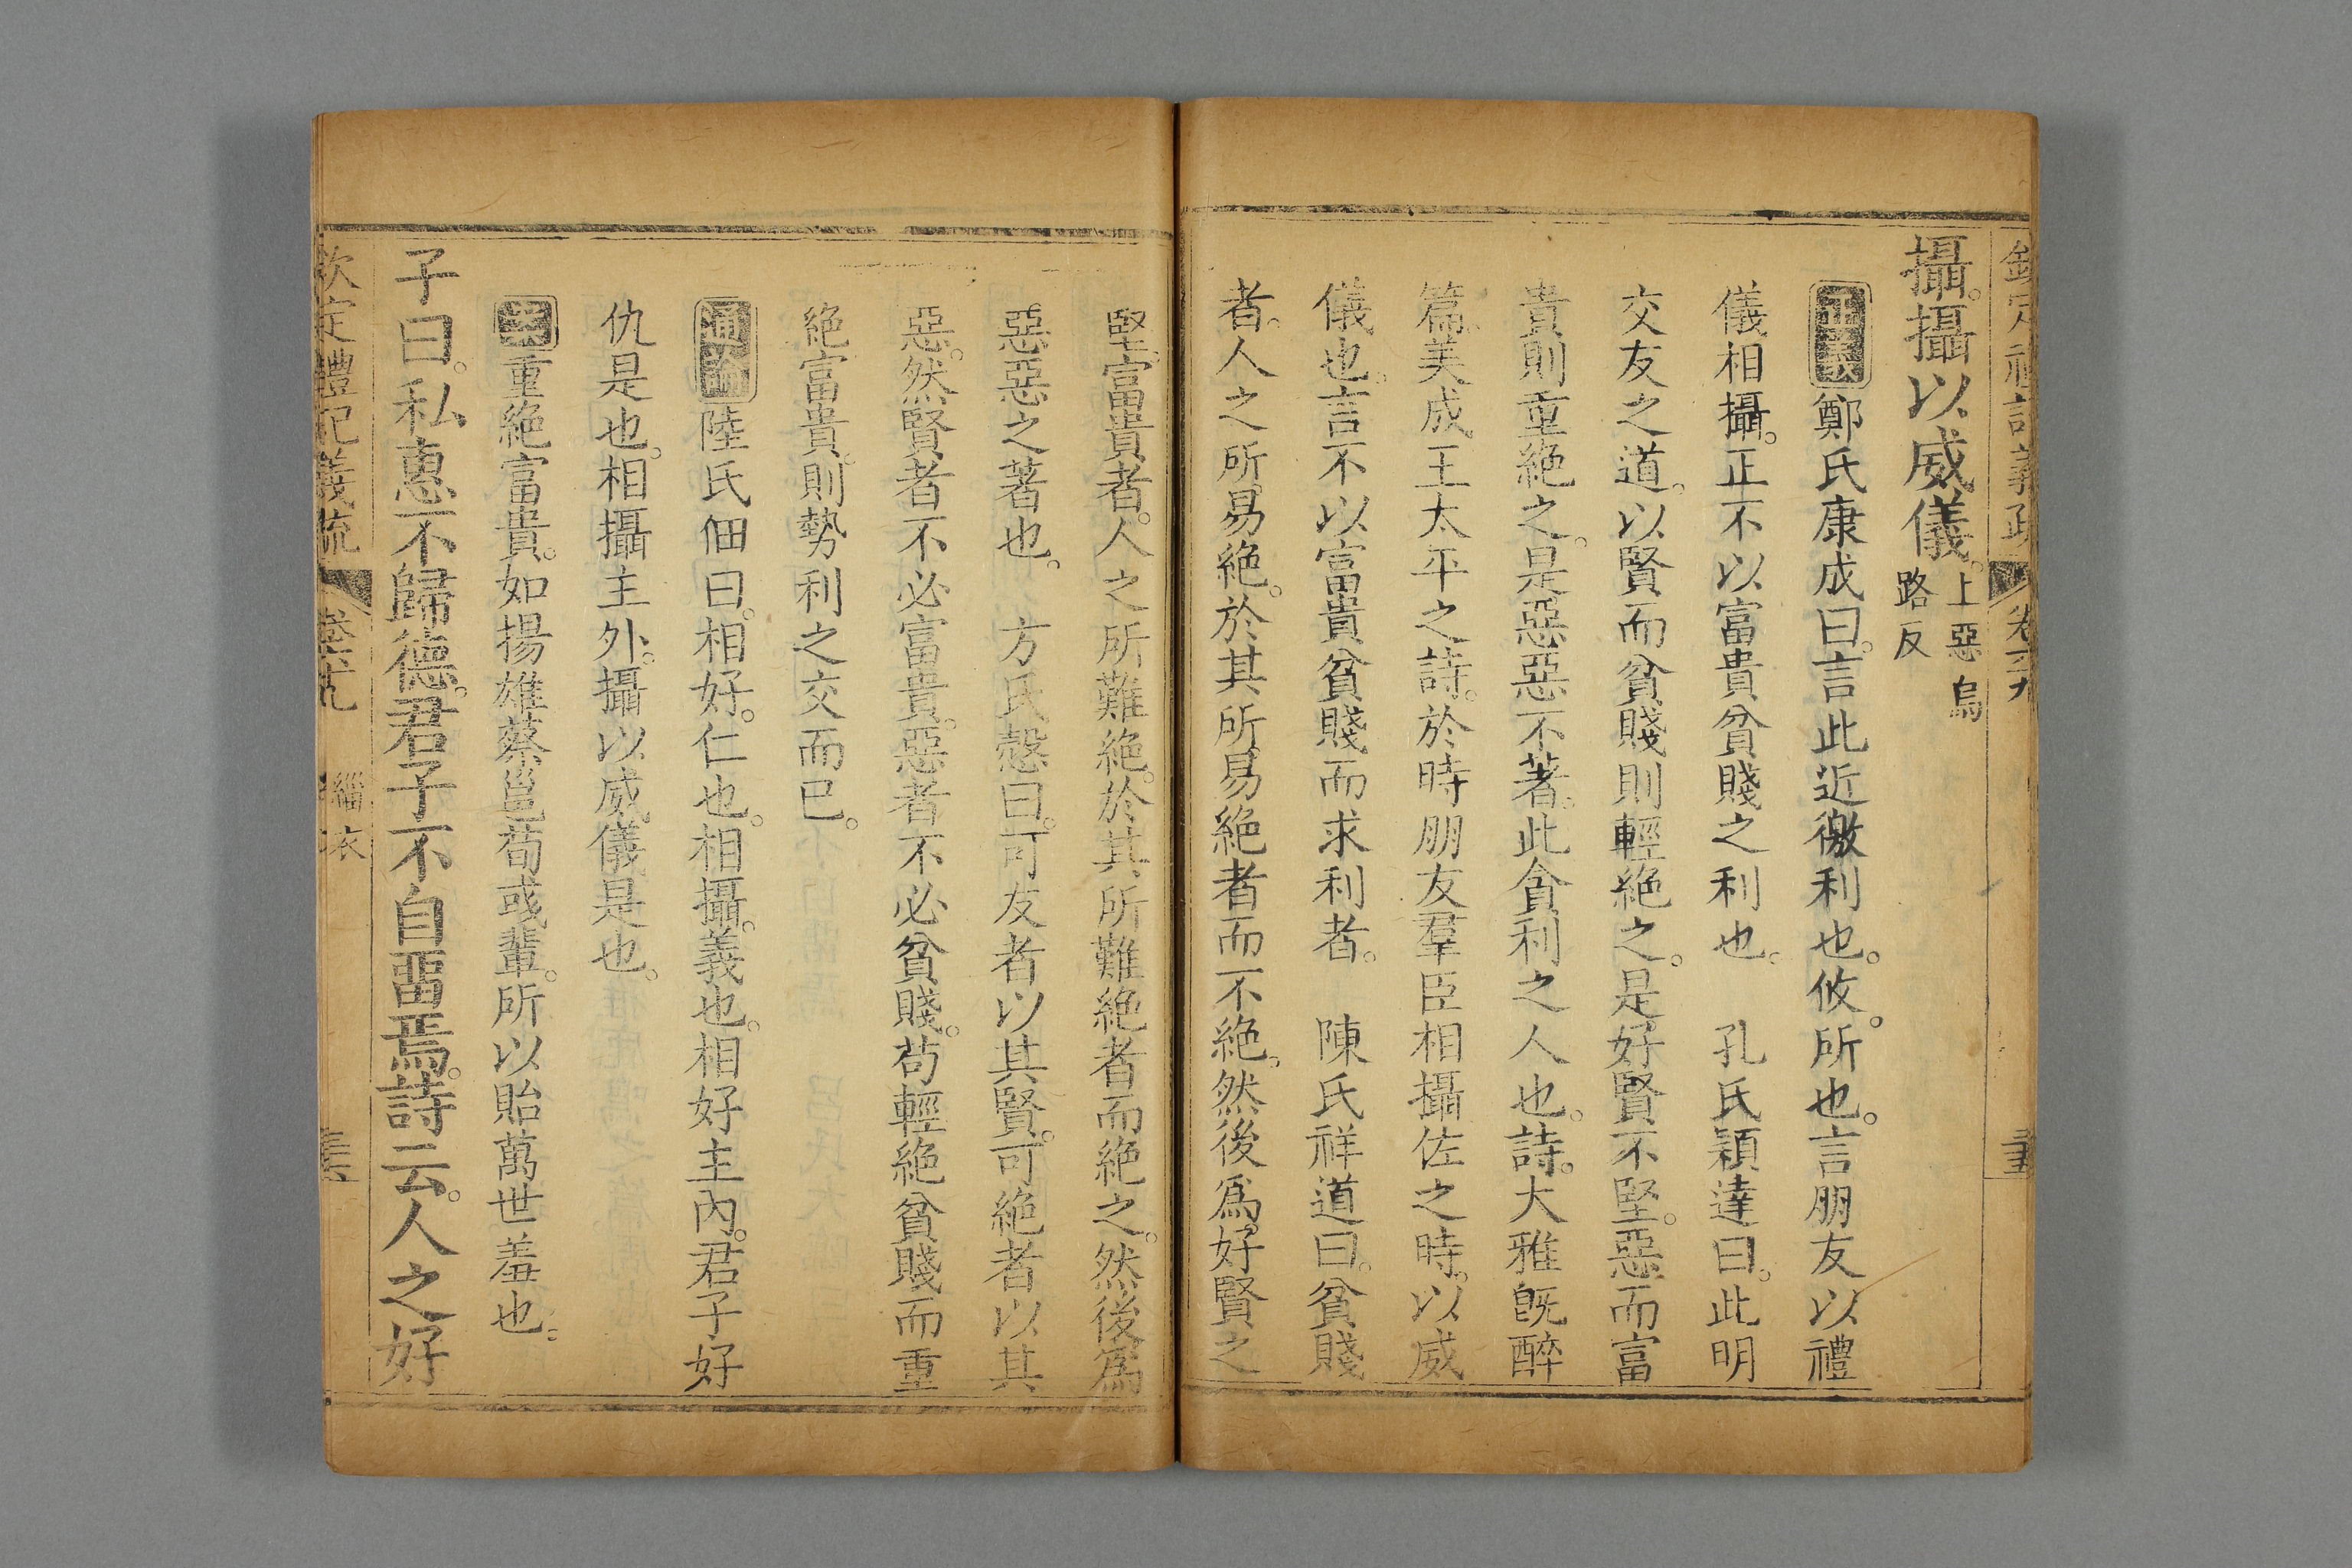 欽定禮記義疏 卷六十九
攝。攝以威儀。上惡烏路反
正義鄭氏康成曰。言此近徼利也。攸。所也。言朋友以禮
儀相攝。正不以富貴貧賤之利也。 孔氏穎達曰。此明
交友之道。以賢而貧賤則輕絶之。是好賢不堅。惡而富
貴則重絶之。是惡惡不著。此貪利之人也。詩。大雅旣醉
篇。美成王太平之詩。於時朋友羣臣相攝佐之時。以威
儀也。言不以富貴貧賤而求利者。 陳氏祥道曰。貧賤
者。人之所易絶。於其所易絶者而不絶。然後爲好賢之
堅。富貴者。人之所難絶。於其所難絶者而絶之。然後爲
惡惡之著也。 方氏慤曰。可友者以其賢。可絶者以其
惡。然賢者不必富貴。惡者不必貧賤。苟輕絶貧賤而重
絶富貴。則勢利之交而已。
通論陸氏佃曰。相好。仁也。相攝。義也。相好主內。君子好
仇是也。相攝主外。攝以威儀是也。
案重絶富貴。如揚雄蔡邕荀彧輩。所以貽萬世羞也。
子曰。私惠不歸德。君子不自畱焉。詩云。人之好
欽定禮記義疏 卷六十九 緇衣